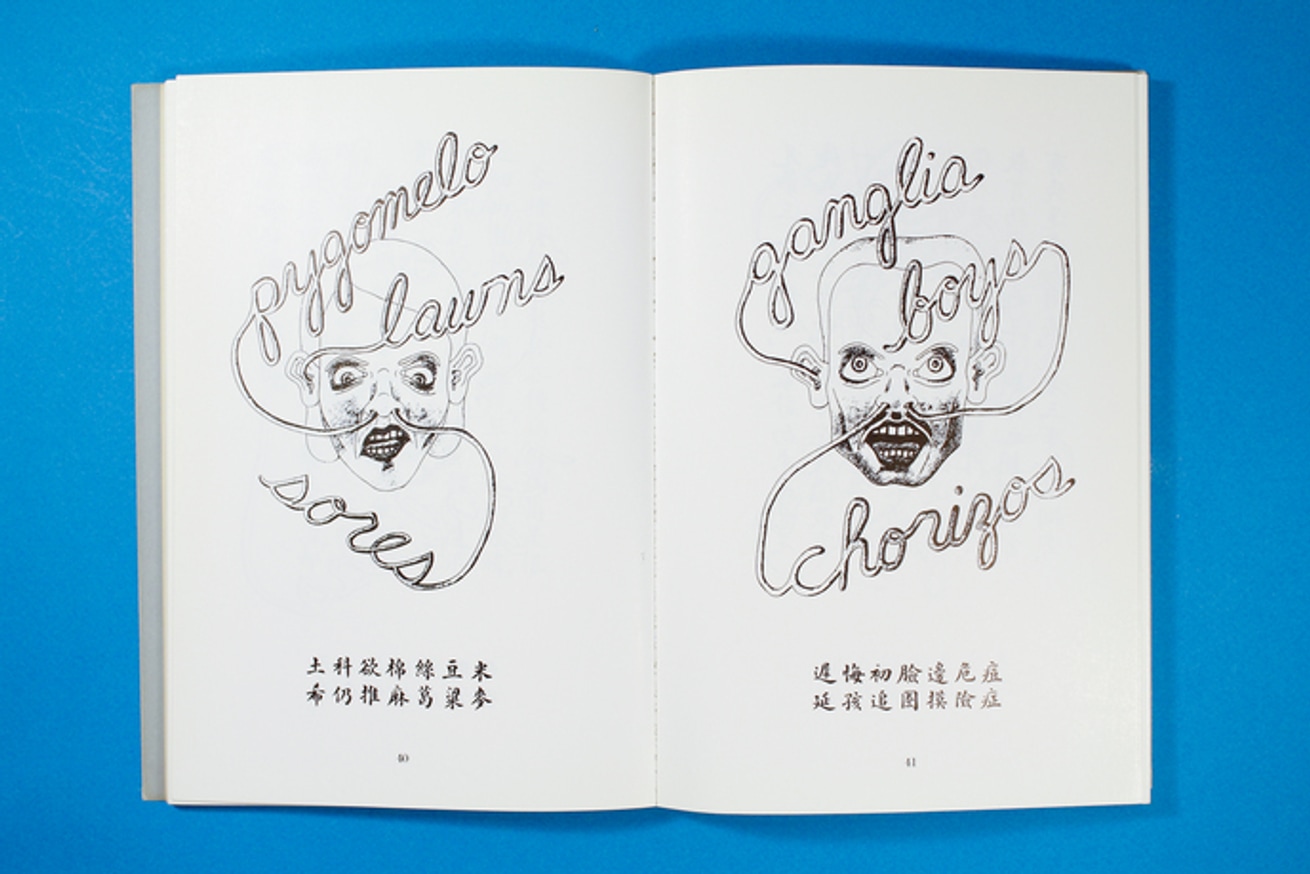 pygomelo
lawns
sores
土科欲棉絲豆米
希仍推麻葛粱麥
40
ganglia
boys
chorizos
遲悔初臉邊危症
延孩追图摸險症
41